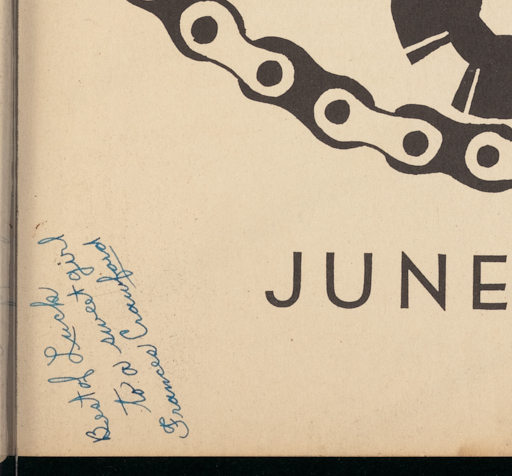 JUNE
Best of Luck
to a sweet girl
Frances Crawford